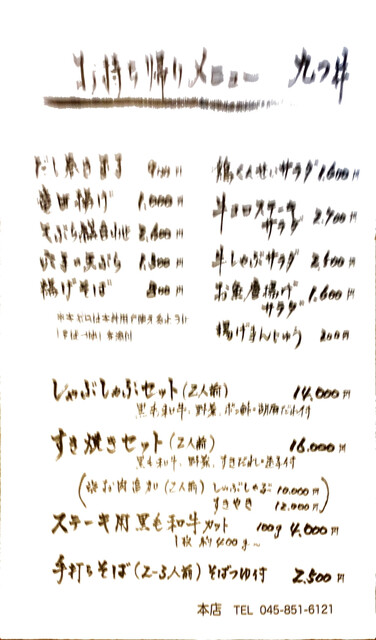 お持ち帰りメニュー 九つ井
だし巻き玉子 900円
竜田揚げ 1,000円
天ぷら盛合せ 2,600円
穴子の天ぷら 1,500円
揚げそば 800円
鶏くんせいサラダ 1,600円
牛ヨロステーキサラダ 2,700円
牛しゃぶサラダ 2,500円
お魚唐揚げサラダ 1,600円
揚げまんじゅう 200円
しゃぶしゃぶセット(2人前) 14,000円
黒毛和牛、野菜、ポン酢・胡麻だれ付
すき焼きセット(2人前) 16,000円
黒毛和牛、野菜、すきだれ・玉子付
(※お肉追加(2人前) しゃぶしゃぶ 10,000円
すきやき 12,000円)
ステーキ用黒毛和牛カット 100g 4,000円
1枚 約400g〜
手打ちそば(2〜3人前)そばつゆ付 2,500円
本店 TEL 045-851-6121